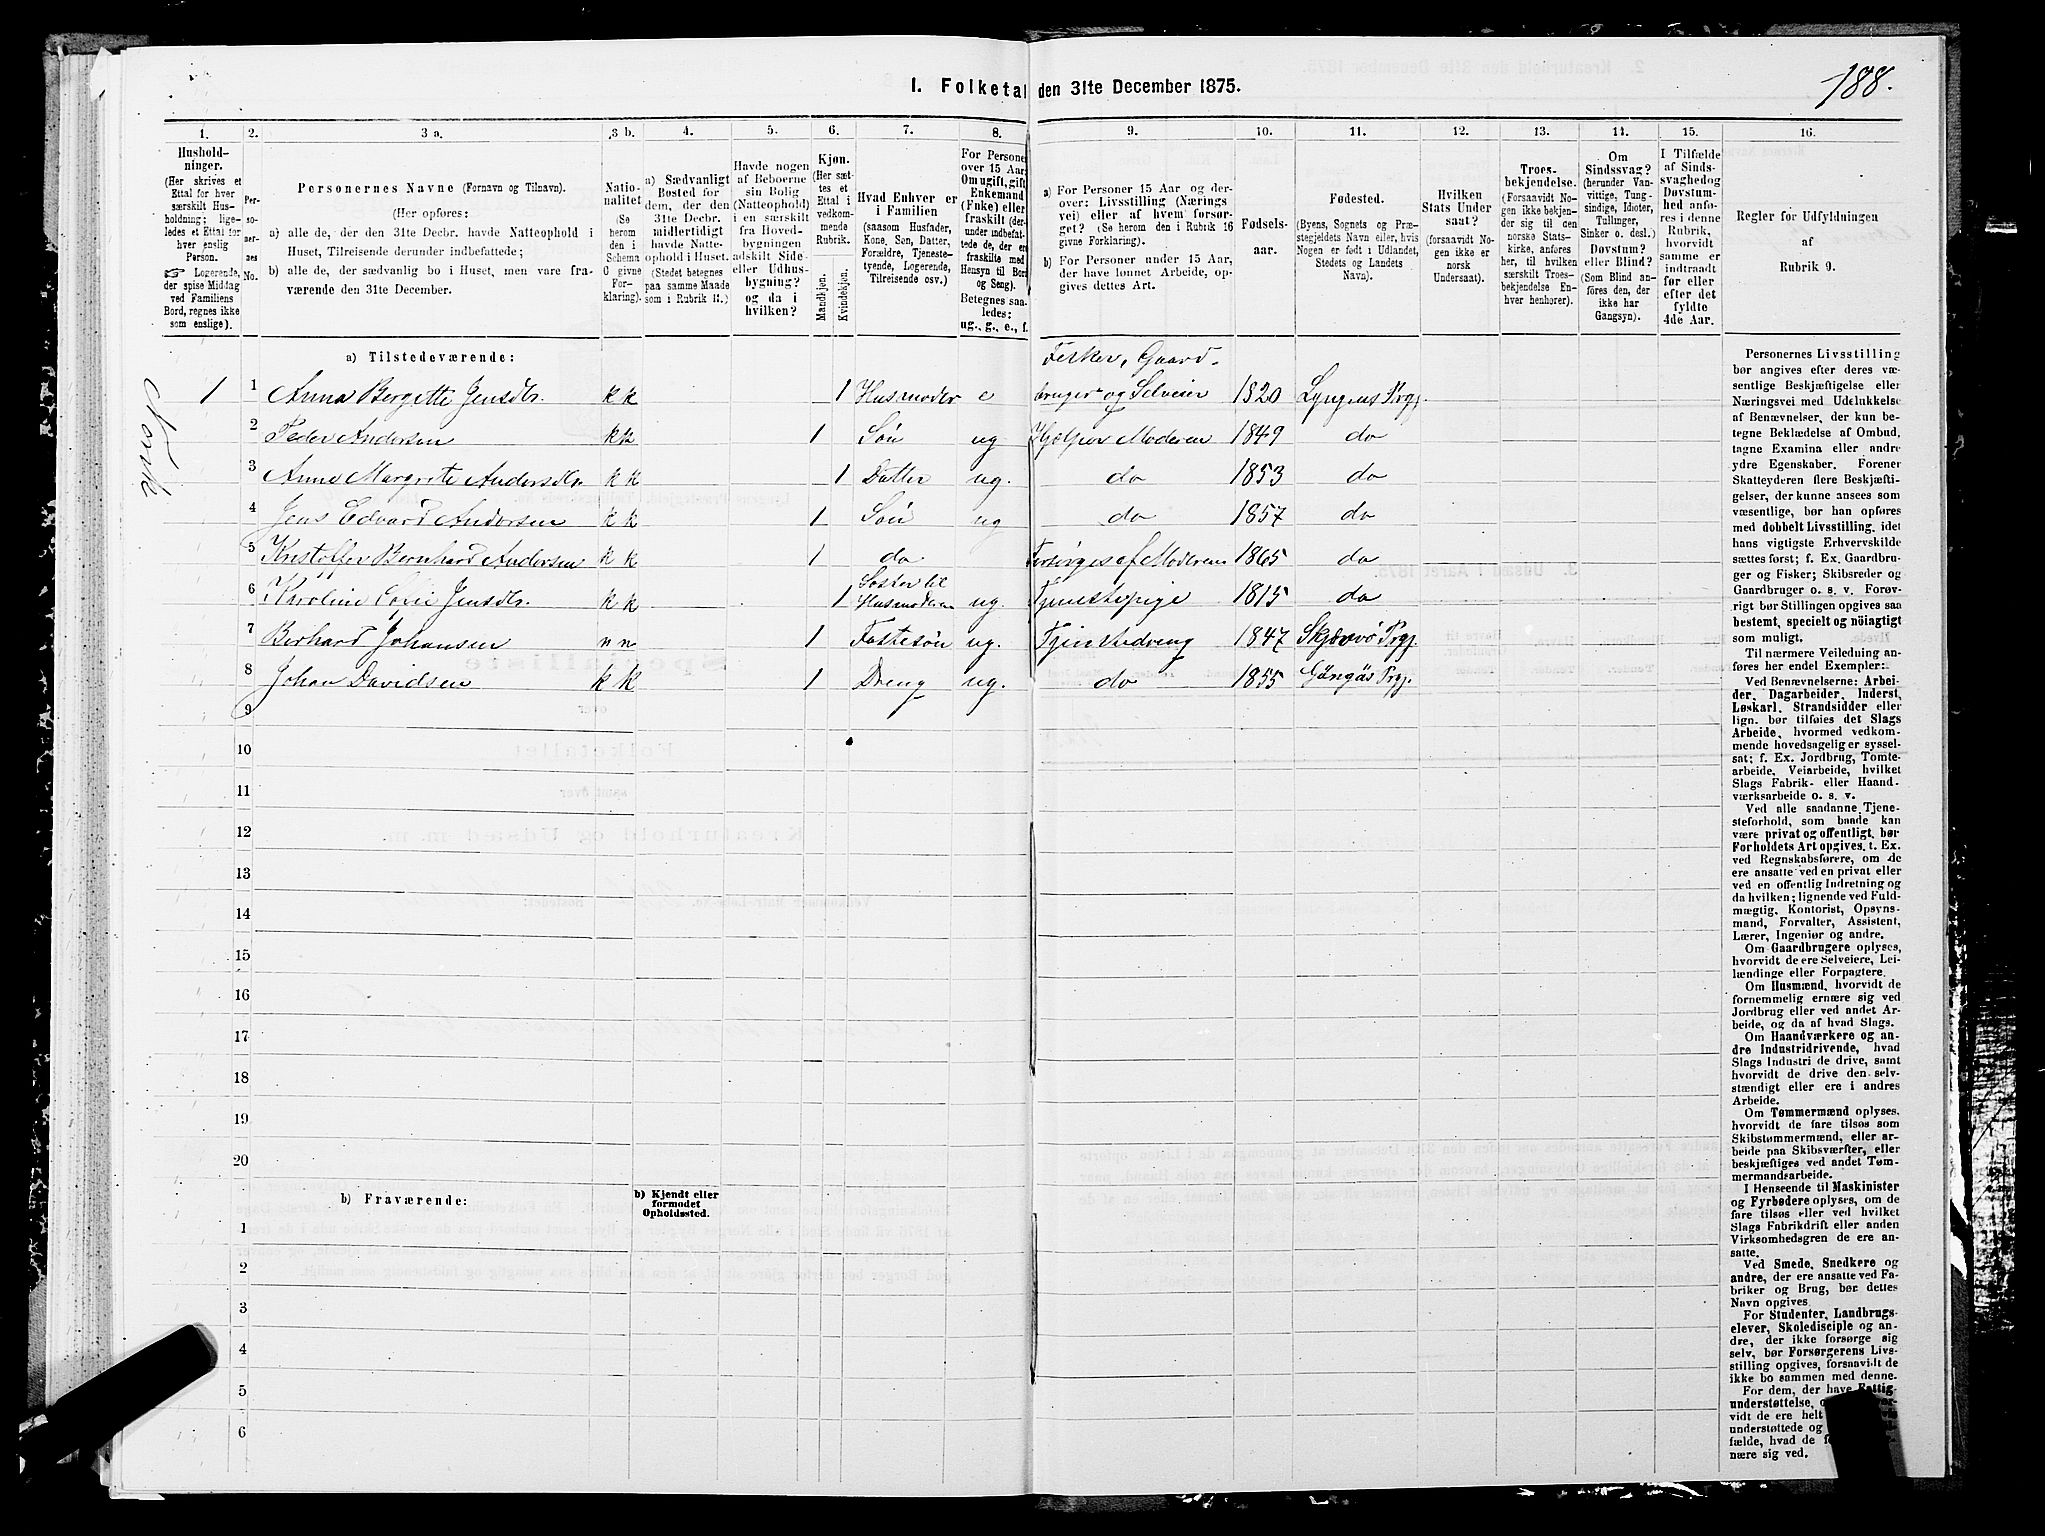 I. Folketal den 31te December 1875.
188.
1.
Hushold-
ninger.
(Her skrives et
Ettal for hver
særskilt Hus-
holdning; lige-
ledes et Ettal for
hver enslig
Person.
☞ Logerende,
der spise Middag
ved Familiens
Bord, regnes ikke
som enslige).
2.
Per-
so-
ner-
nes
No.
3 a.
Personernes Navne (Fornavn og Tilnavn).
(Her opføres:
a) alle de, der den 31te Decbr. havde Natteophold i
Huset, Tilreisende derunder indbefattede;
b) alle de, der sædvanlig bo i Huset, men vare fra-
værende den 31te December.
3 b.
Natio-
nalitet
(Se
herom
den i
Schema
O givne
For-
klaring).
4.
a) Sædvanligt
Bosted for
dem, der den
31te Decbr.
midlertidigt
havde Natte-
ophold i Huset.
(Stedet betegnes
paa samme Maade
som i Rubrik 11.)
5.
Havde nogen
af Beboerne
sin Bolig
(Natteophold)
i en særskilt
fra Hoved-
bygningen
adskilt Side-
eller Udhus-
bygning?
og da i
hvilken?
6.
Kjøn.
(Her sæt-
tes et
Ettal i
vedkom-
mende
Rubrik.
Mandkjøn.
Kvindekjøn.
7.
Hvad Enhver er
i Familien
(saasom Husfader,
Kone, Søn, Datter,
Forældre, Tjeneste-
tyende, Logerende,
Tilreisende osv.)
8.
For Personer
over 15 Aar:
Om ugift, gift,
Enkemand
(Enke) eller
fraskilt (der-
under indbefat-
tede de, der er
fraskilte med
Hensyn til Bord
og Seng).
Betegnes saa-
ledes:
ug., g., e., f.
9.
a) For Personer 15 Aar og der-
over: Livsstilling (Nærings
vei) eller af hvem forsør-
get? (Se herom den i Rubrik 16
givne Forklaring).
b) For Personer under 15 Aar,
der have lønnet Arbeide, op-
gives dettes Art.
10.
Fødsels-
aar.
11.
Fødested.
(Byens, Sognets og Præ-
stegjeldets Navn eller, hvis
Nogen er født i Udlandet,
Stedets og Landets
Navn).
12.
Hvilken
Stats Under
saat?
(forsaavidt No-
gen ikke er
norsk
Undersaat).
13.
Troes-
bekjendelse.
(Forsaavidt No-
gen ikke bekjen-
der sig til den
norske Stats-
kirke, anføres
her, til hvilken
særskilt Troes-
bekjendelse En-
hver henhorer).
14.
Om
Sindssvag?
(herunder Van-
vittige, Tung-
sindige, Idioter,
Tullinger,
Sinker o. desl.)
Døvstum?
eller Blind?
(Som Blind an-
föres den, der
ikke har
Gangsyn).
15.
I Tilfælde
af Sinds-
svaghed og
Døvstum-
hed anfø-
res i denne
Rubrik,
hvorvidt
samme er
indtraadt
før eller
efter det
fyldte
4de Aar.
16.
Regler for Udfyldningen
af
Rubrik 9.
a) Tilstedeværende:
Norsk
Fisker, Gaard-
1 1 Anna Bergette Jensdtr. kk 1 Husmoder e bruger og Selveier 1820 Lyngens Prgj.
2 Peder Andersen kk 1 Søn ug Hjælper Moderen 1849 do
3 Anne Margrete Andersdtr. kk 1 Datter ug. do 1853 do
4 Jens Edvard Andersen kk 1 Søn ug do 1857 do
5 Kristoffer Bernhard Andersen kk 1 do Forsørges af Moderen 1865 do
6 Karoline Sofie Jensdtr. kk 1 Søster til Husmoderen ug. Tjenestepige 1815 do
7 Berhard Johansen nn 1 Fostersøn ug. Tjenestedreng 1847 Skjærvø Prgj.
8 Johan Davidsen kk 1 Dreng ug. do 1855 Prgj.
9
10
11
12
13
14
15
16
17
18
19
20
b) Fraværende:
b) Kjendt eller
formodet
Opholdssted.
1
2
3
4
5
6
Personernes Livsstilling
bør angives efter deres væ-
sentlige Beskjæftigelse eller
Næringsvei med Udelukkelse
af Benævnelser, der kun be-
tegne Beklædelse af Ombud,
tagne Examina eller andre
ydre Egenskaber. Forener
Skatteyderen flere Beskjæfti-
gelser, der kunne ansees som
væsentlige, bør han opføres
med dobbelt Livsstilling, idet
hans vigtigste Erhvervskilde
sættes først; f. Ex. Gaardbru-
ger og Fisker; Skibsreder og
Gaardbruger o. s. v. Forøv-
rigt bør Stillingen opgives saa
bestemt, specielt og nöiagtigt
som muligt.
Til nærmere Veiledning an-
føres her endel Exempler:
Ved Benævnelserne: Arbei-
der, Dagarbeider, Inderst,
Løskarl, Strandsidder eller
lign. bør tilføies det Slags
Arbeide, hvormed vedkom-
mende hovedsagelig er syssel-
sat; f. Ex. Jordbrug, Tomte-
arbeide, Veiarbeide, hvilket
Slags Fabrik- eller Haand-
værksarbeide o. s. v.
Ved alle saadanne Tjene-
steforhold, som baade kan
være privat og offentligt, bør
Forholdets Art opgives, t. Ex.
ved Regnskabsførere, om de
ere ansatte ved en privat eller
ved en offentlig Indretning og
da hvilken; lignende ved Fuld-
mægtig, Kontorist, Opsyns-
mand, Forvalter, Assistent,
Lærer, Ingeniør og andre.
Om Gaardbrugere oplyses,
hvorvidt de ere Selveiere, Lei-
lændinge eller Forpagtere.
Om Husmænd, hvorvidt de
fornemmelig ernære sig ved
Jordbrug eller ved andet Ar-
beide, og da af hvad Slags.
Om Haandværkere og an-
dre Industridrivende, hvad
Slags Industri de drive, samt
hvorvidt de drive den selv-
stændigt eller ere i andres
Arbeide.
Om Tømmermænd oplyses,
hvorvidt de fare tilsøs som
Skibstømmermænd, eller ar-
beide paa Skibsværfter, eller
beskjæftiges ved andet Tøm-
mermandsarbeide.
I Henseende til Maskinister
og Fyrbødere oplyses, om de
fare tilsøs eller ved hvilket
Slags Fabrikdrift eller anden
Virksomhedsgren de ere an-
satte.
Ved Smede, Snedkere og
andre, der ere ansatte ved Fa-
briker og Brug, bør dettes
Navn opgives.
For Studenter, Landbrugs-
elever, Skoledisciple og an-
dre, der ikke forsørge sig
selv, bør Forsørgerens Livs-
stilling opgives, forsaavidt de
ikke bo sammen med denne.
For dem, der have Fattig-
understøttelse,
vidt de ere helt
understøttede og
fælde, hvad de
nære sig ved.